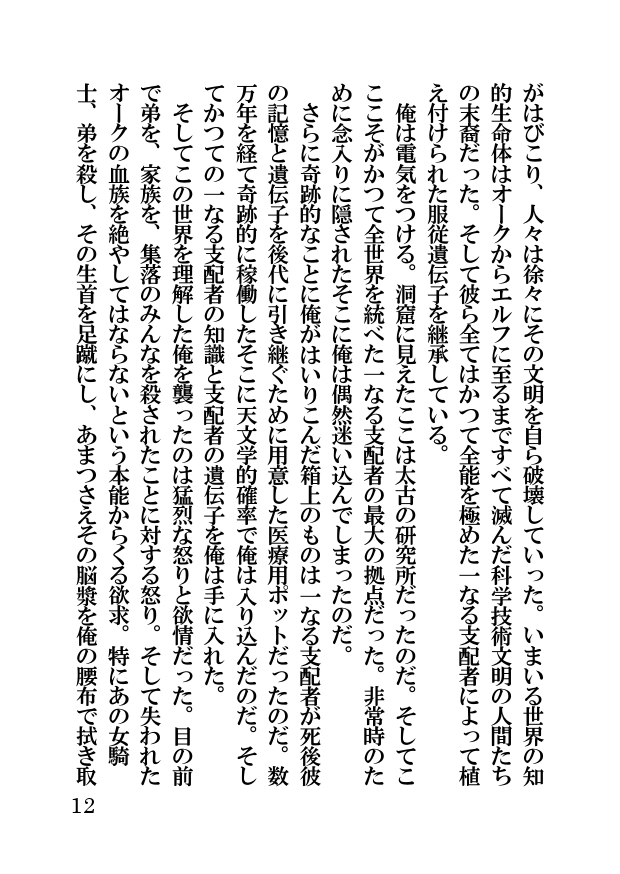 がはびこり、人々は徐々にその文明を自ら破壊していった。いまいる世界の知
的生命体はオークからエルフに至るまですべて滅んだ科学技術文明の人間たち
の末裔だった。そして彼ら全てはかつて全能を極めた一なる支配者によって植
え付けられた服従遺伝子を継承している。
　俺は電気をつける。洞窟に見えたここは太古の研究所だったのだ。そしてこ
ここそがかつて全世界を統べた一なる支配者の最大の拠点だった。非常時のた
めに念入りに隠されたそこに俺は偶然迷い込んでしまったのだ。
　さらに奇跡的なことに俺がはいりこんだ箱上のものは一なる支配者が死後彼
の記憶と遺伝子を後代に引き継ぐために用意した医療用ポットだったのだ。数
万年を経て奇跡的に稼働したそこに天文学的確率で俺は入り込んだのだ。そし
てかつての一なる支配者の知識と支配者の遺伝子を俺は手に入れた。
　そしてこの世界を理解した俺を襲ったのは猛烈な怒りと欲情だった。目の前
で弟を、家族を、集落のみんなを殺されたことに対する怒り。そして失われた
オークの血族を絶やしてはならないという本能からくる欲求。特にあの女騎
士、弟を殺し、その生首を足蹴にし、あまつさえその脳漿を俺の腰布で拭き取
12